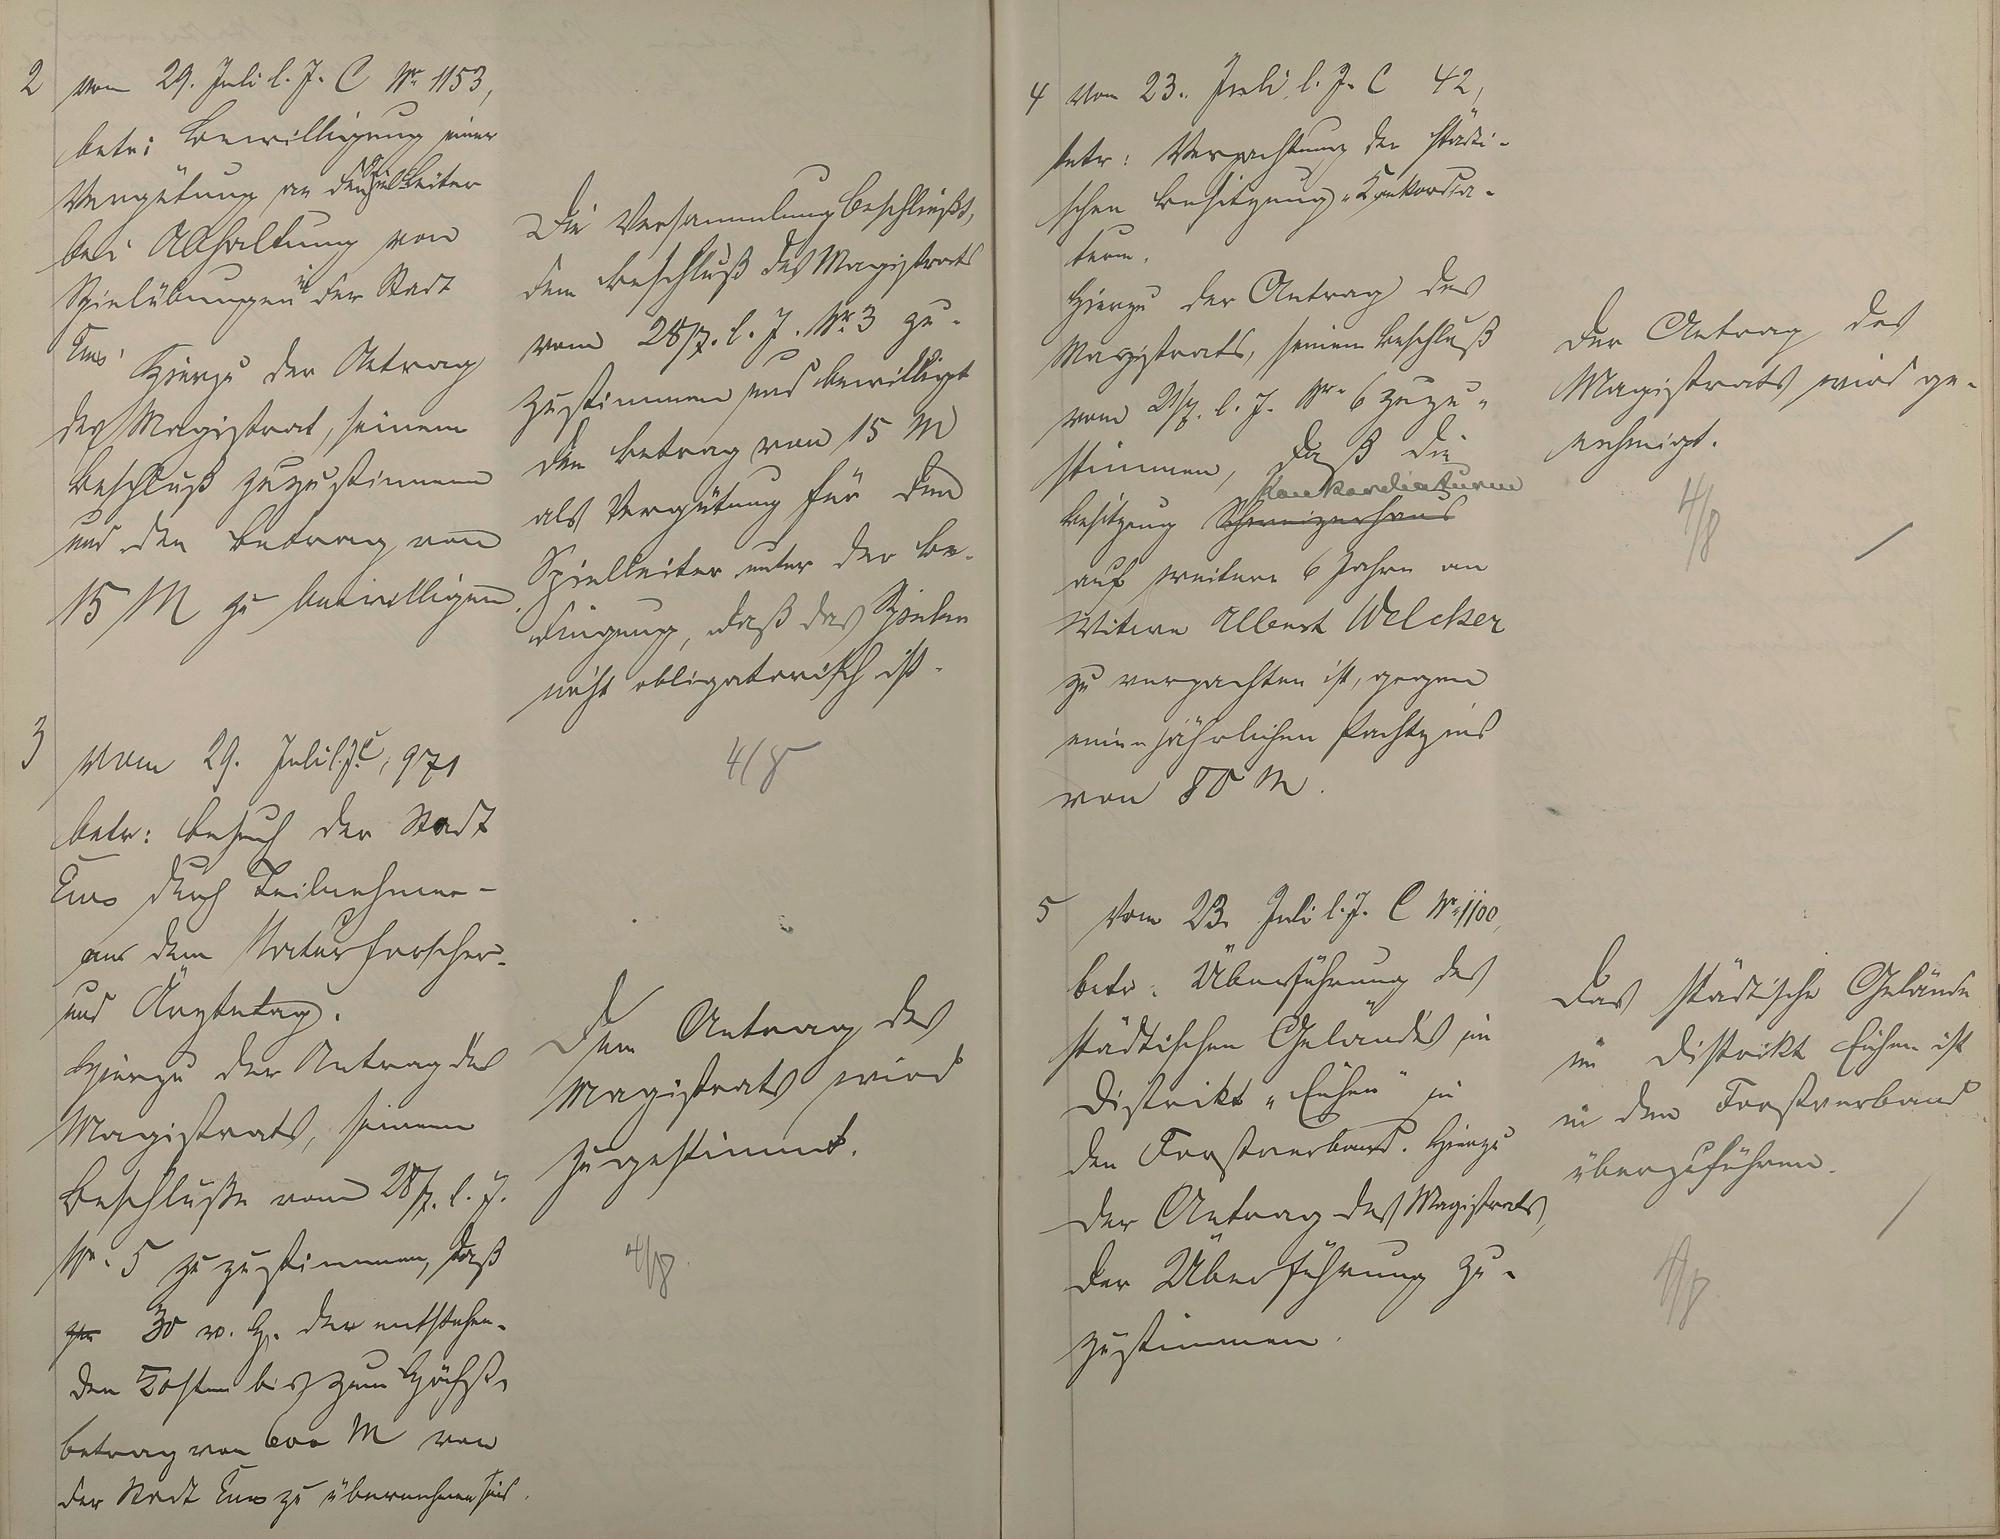 2 vom 29. Juli l. J. C Nr 1153,
betr: Bewilligung einer
Vergütung an den Spielleiter
bei Abhaltung von
Spielübungen in der Stadt
Ems. Hierzu der Antrag
des Magistrat, seinem
Beschluß zuzustimmen
und den Betrag von
15 M zu bewilligen.
Die Versammlung beschließt,
dem Beschluß des Magistrats
vom 28/7. l. J. Nr 3 zu-
zustimmen und bewilligt
den Betrag von 15 M
als Vergütung für den
Spielleiter unter der Be-
dingung, daß das Spielen
nicht obligatorisch ist.
4/8
3 vom 29. Juli l. J. C, 971
betr: Besuch der Stadt
Ems durch Teilnehmer
aus dem Naturforscher-
und Ärztetag.
Hierzu der Antrag des
Magistrats, seinem
Beschluße vom 28/7. l. J.
Nr. 5 zuzustimmen, daß
30 v. H. der entstehen-
den Kosten bis zum Höchst-
betrag von 600 M von
der Stadt Ems zu übernehmen sind.
Dem Antrag des
Magistrats wird
zugestimmt.
4/8.
4 vom 23. Juli l. J. C 42,
betr: Verpachtung der städti-
schen Besitzung „Konkordia-
turm.
Hierzu der Antrag des
Magistrats, seinem Beschluß
vom 21/7. l. J. Nr. 6 zuzu-
stimmen, daß die
Konkordiaturm
Besitzung Schweizerhaus
auf weitere 6 Jahre an
Witwe Albert Welcker
zu verpachten ist, gegen
einen jährlichen Pachtzins
von 80 M.
Der Antrag des
Magistrats wird ge-
nehmigt.
4/8
5 Vom 23. Juli l. J. C Nr. 1100,
betr. Überführung des
städtischen Geländes im
Distrikt „Eichen" in
den Forstverband. Hierzu
der Antrag des Magistrats,
der Überführung zu-
zustimmen.
Das städtische Gelände
im Distrikt Eichen ist
in den Forstverband
überzuführen.
4/8